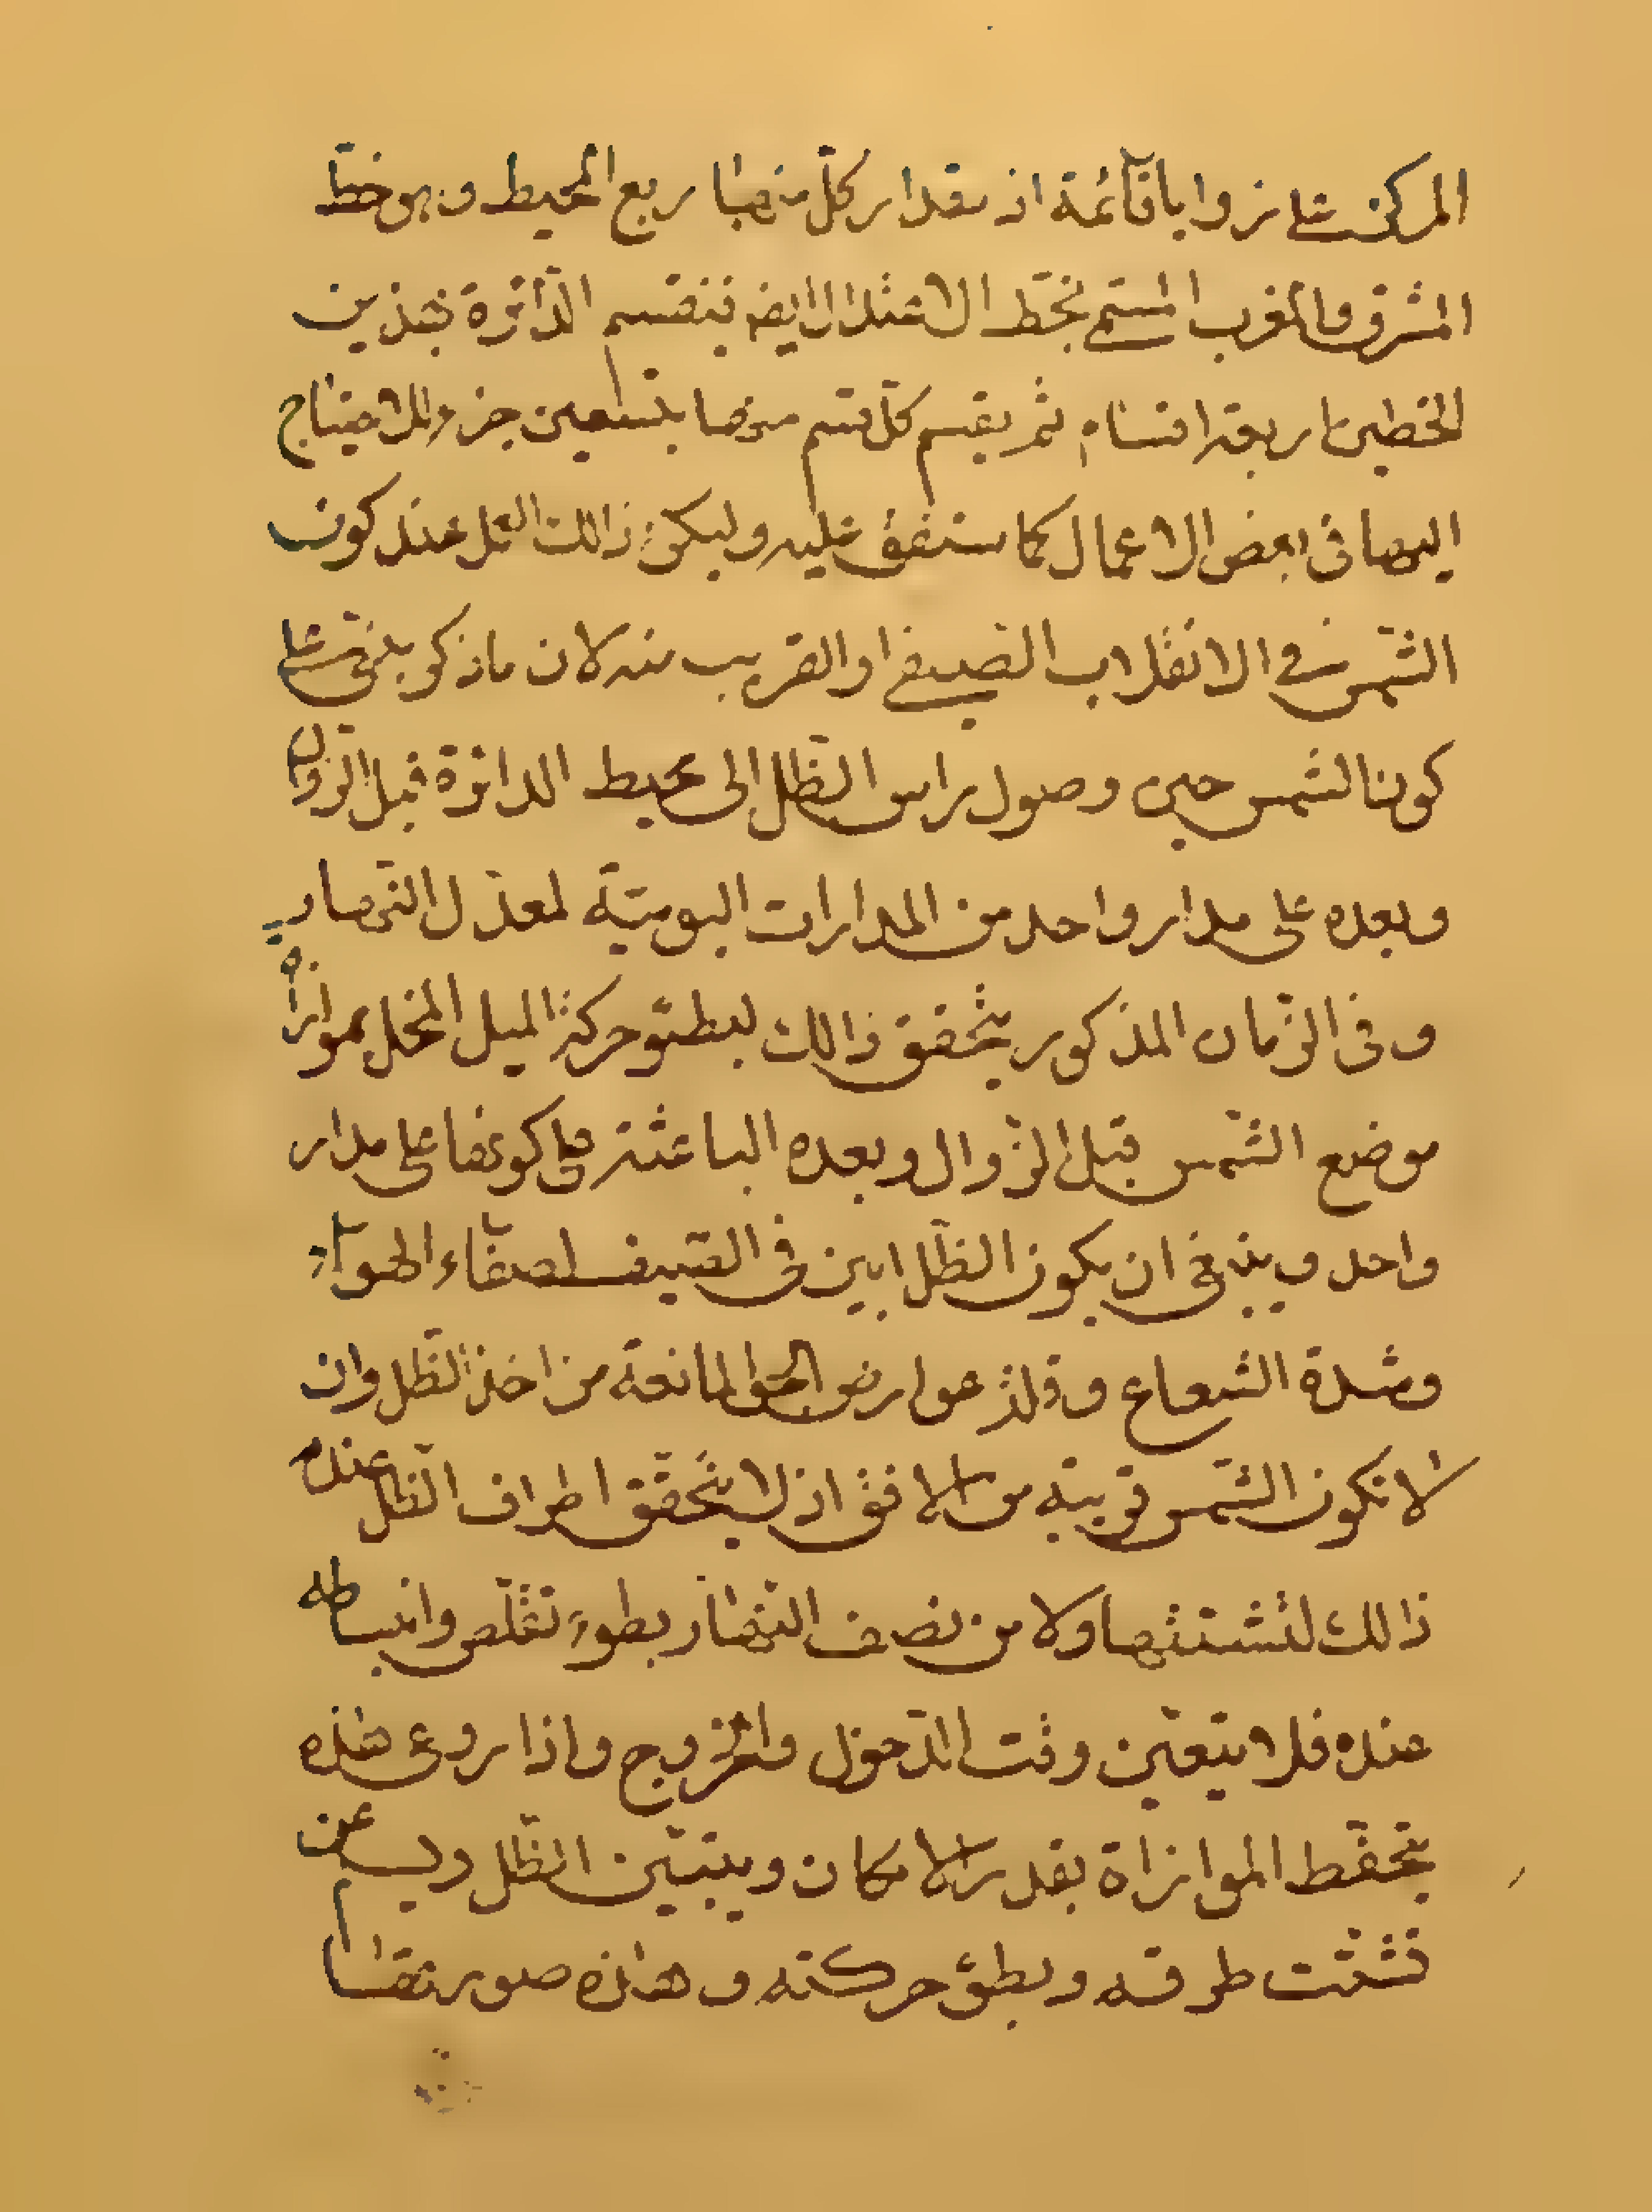 المركز على زوايا قآئمة اذ مقدار كلّ منهما ربع المحيط وهو خطّ
المشرق والمغرب المسمى بخطّ الاعتدال ايضا فتنقسم الدّآئرة بهذين
الخطين باربعة اقسام ثم يقسم كلّ قسم منها بتسعين جزء للاحتياج
اليها فى بعض الاعمال كما ستقف عليه وليكن ذالك العمل عند كون
الشّمس في الانقلاب الصّيفي او القريب منه لان ما ذكر يبتنى على
كون الشمس حين وصول راس الظّل الى محيط الدائرة قبل الزوال
وبعده على مدار واحد من المدارات اليوميّة لمعدّل النّهار
وفى الزّمان المذكور يتحقق ذالك لبطئو حركة الميل المخل بموازاة
موضع الشّمس قبل الزّوال وبعده الباعثة على كونها على مدار
واحد وينبغى ان يكون الظّل ابين فى الصّيف لصفآء الهوآء
وشدة الشعاع وقلة عوارض الجوّ المانعة من اخذ الظّل وان
لا تكون الشّمس قريبة من الافق اذ لا يتحقق اطراف الظّل عند
ذالك لتشتتها ولا من نصف النّهار لبطوء تقلّص وانبساطه
عنده فلا يتعيّن وقت الدّخول والخروج واذا روعى هذه
يتحفّظ الموازاة بقدر الامكان ويتبيّن الظّل ويسـ عن
تشتّت طرفه وبطؤ حركته وهذه صورتها